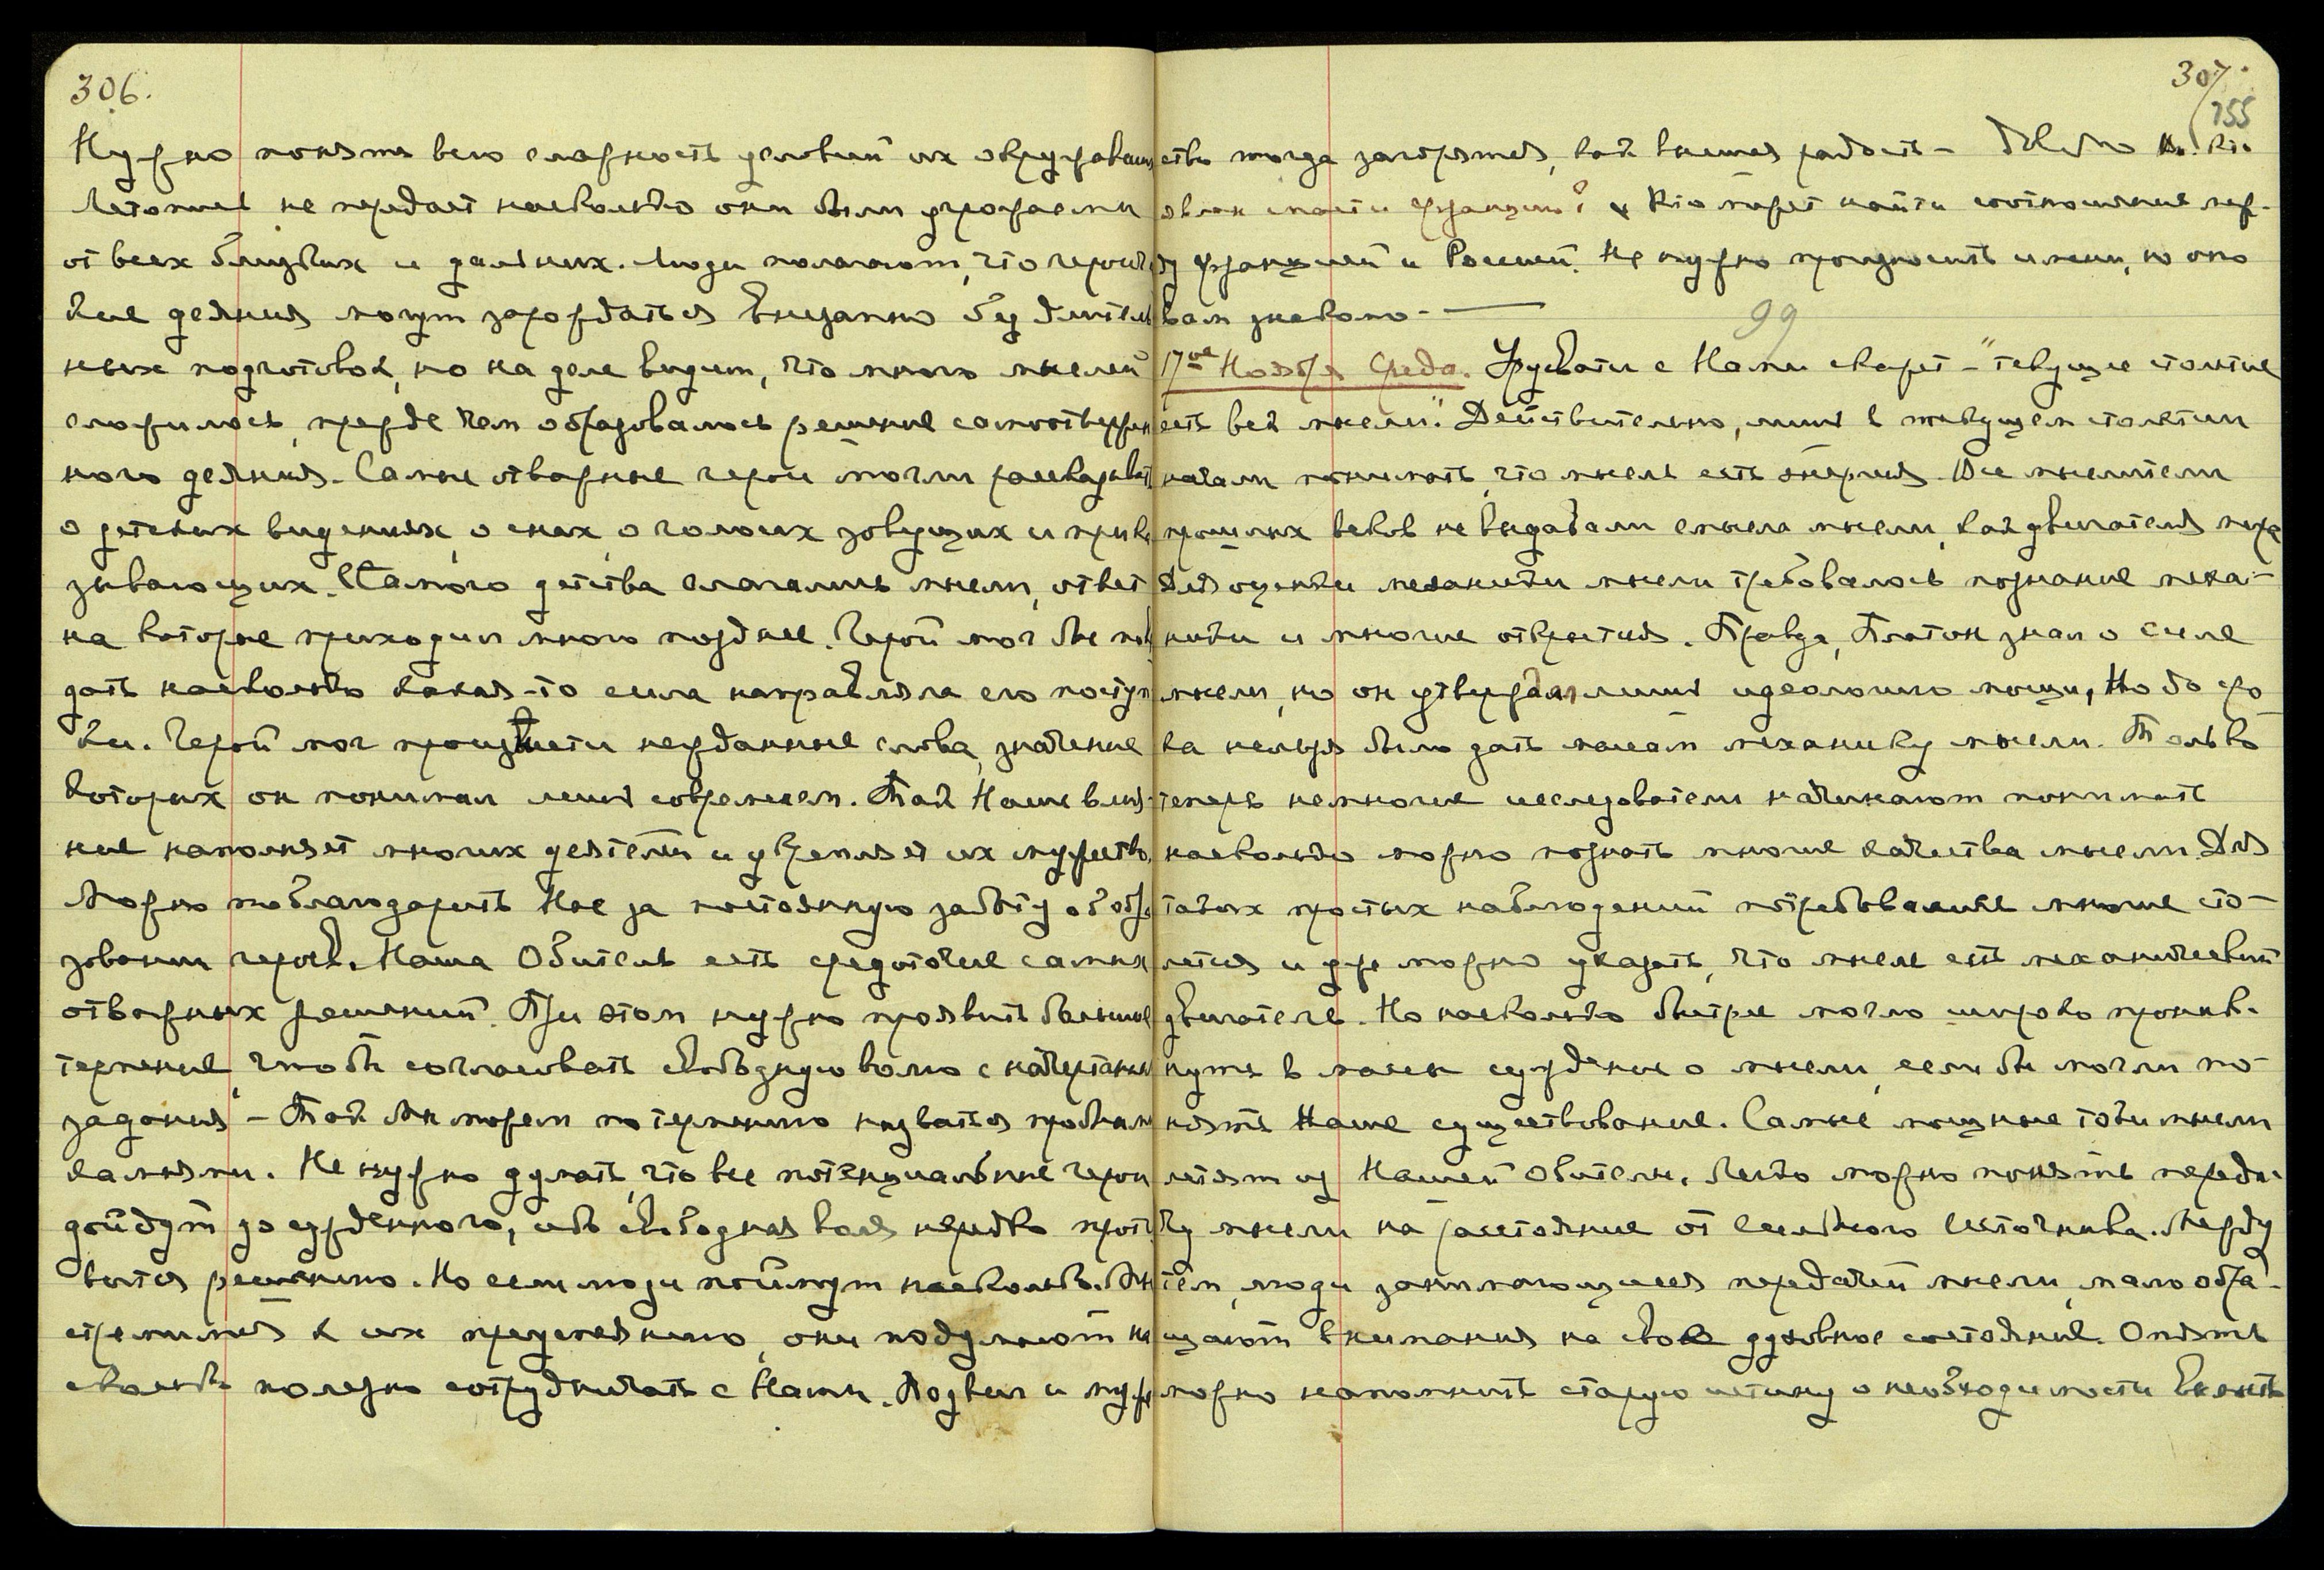 306.
Нужно понять всю сложность условий их окружавших
Летопись не передает насколько они были угрожаемы
от всех близких и дальних. Люди полагают, что героиче
кие деяния могут зарождаться внезапно без длитель
ных подготовок, но на деле видим, что много мыслей
сложилось, прежде чем образовалось решение самоотвержен
ного деяния. Самые отважные герои могли рассказывать
о детских видениях, о снах, о голосах зовущих и прика
зывающих. С самого детства слагались мысли, ответ
на которые приходил много позднее. Герой мог бы пове
дать насколько какая-то сила направляла его поступ
ки. Герой мог произнести нежданные слова, значение
которых он понимал лишь со временем. Так Наше влия-
ние наполняет многих деятелей и укрепляет их мужество.
Можно поблагодарить Нас за постоянную заботу об обра
зовании героев. Наша Обитель есть средоточие самых
отважных решений. При этом нужно проявить большое
терпение, чтобы согласовать свободную волю с начертанием
задания – Так Мы можем по терпению назваться пробными
камнями. Не нужно думать, что все потенциальные герои
дойдут до сужденного, ибо свободная воля нередко проти
вится решению. Но если люди поймут насколько Мы
стремимся к их преуспеянию, они подумают на
сколько полезно сотрудничать с Нами. Подвиг и муже
307.
155
ство тогда загорятся, как высшая радость –
Франции? Rio может найти соотношение меж-
ду Францией и Россией. Не нужно произносить имени, но оно
вам знакомо. —
99
17ое Ноября Среда. Урусвати с Нами скажет – "текущее столетие
есть век мысли." Действительно, лишь в текущем столетии
начали понимать, что мысль есть энергия. Все мыслители
прошлых веков не выдавали смысла мысли, как двигателя мира
Для оценки механики мысли требовалось познание меха-
ники и многие открытия. Правда, Платон знал о силе
мысли, но он утверждал лишь идеологию мощи, Но до сро
ка нельзя было дать массам механику мысли. Только
теперь немногие исследователи начинают понимать
насколько можно познать многие качества мысли. Для
таких простых наблюдений потребовались многие сто-
летия и уже можно указать, что мысль есть механический
двигатель. Но насколько быстрее могло широко проник-
нуть в массы суждение о мысли, если бы могли по-
нять Наше существование. Самые мощные токи мысли
летят из Нашей Обители. Легко можно понять переда-
чу мысли на расстояние от сильного источника. Между
тем, люди занимающиеся передачей мысли, мало обра-
щают внимания на свое духовное состояние. Опять
можно напомнить старую истину о необходимости